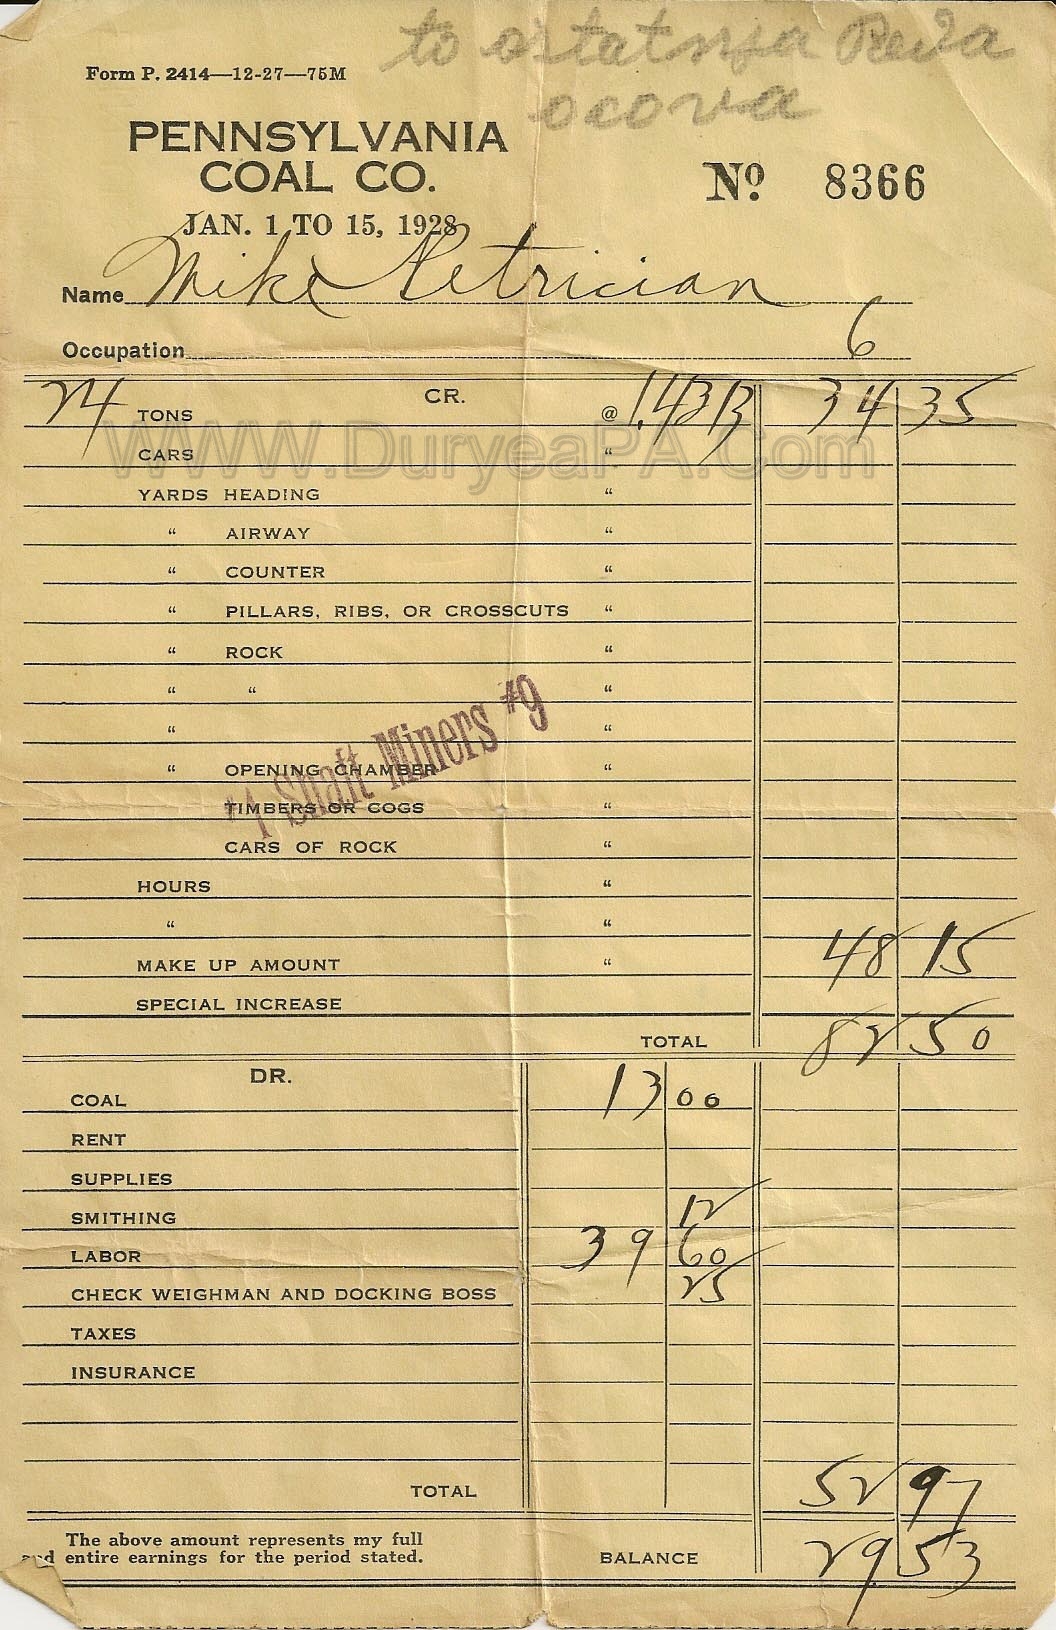 to ostatnja Peda
ocova
Form P. 2414—12-27—75M
PENNSYLVANIA
COAL CO.
No. 8366
JAN. 1 TO 15, 1928
Name Mike Petrician
Occupation 6
24 TONS CR. @ 1.4313 34 35
WWW.DuryeaPA.Com
CARS "
YARDS HEADING "
" AIRWAY "
" COUNTER "
" PILLARS, RIBS, OR CROSSCUTS "
" ROCK "
" " "
" "
" OPENING CHAMBER "
#1 Shaft Miners #9
TIMBERS OR COGS "
CARS OF ROCK "
HOURS "
" "
MAKE UP AMOUNT " 48 15
SPECIAL INCREASE
TOTAL 82 50
DR.
COAL 13 00
RENT
SUPPLIES
SMITHING 12
LABOR 39 60
CHECK WEIGHMAN AND DOCKING BOSS 25
TAXES
INSURANCE
TOTAL 52 97
The above amount represents my full
and entire earnings for the period stated.
BALANCE 29 53